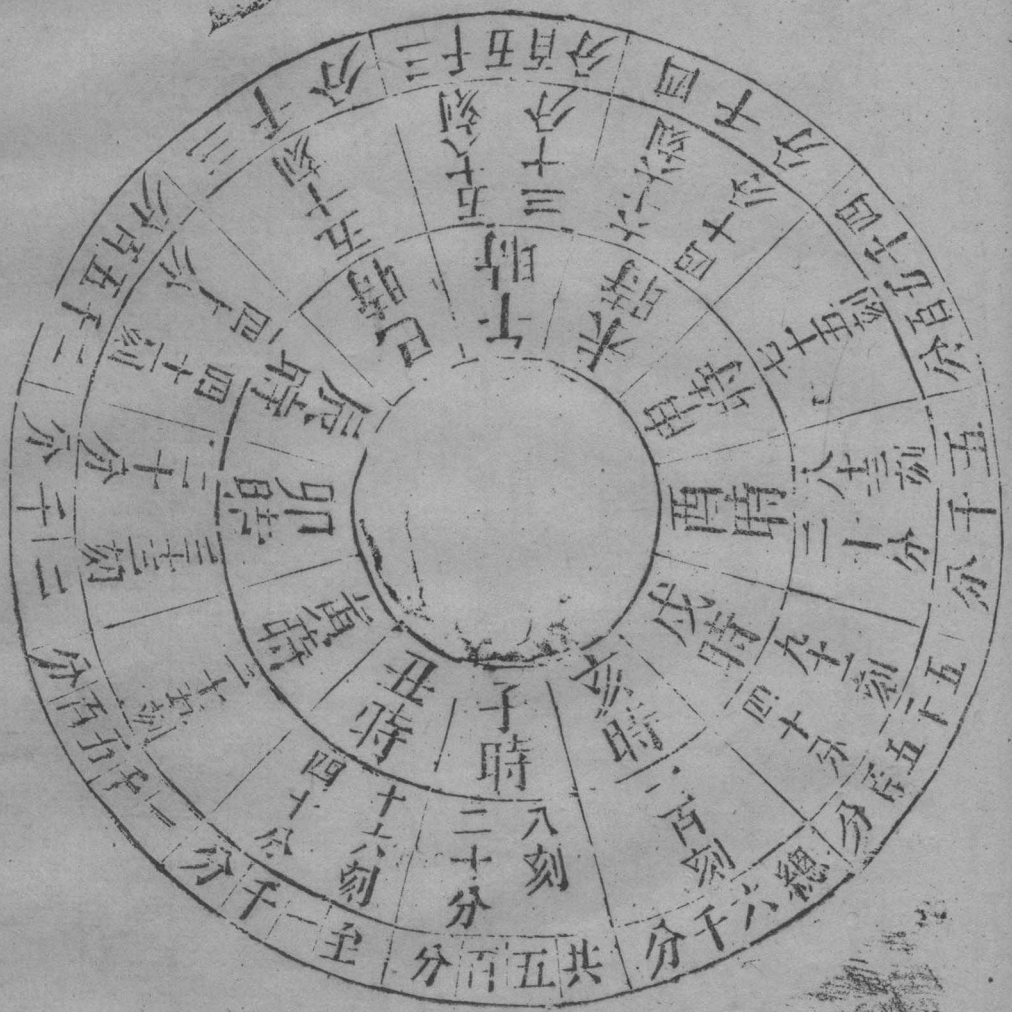 子時
八刻
二十分
共五百分
丑時
十六刻
四十分
至一千分
寅時
二十五刻
一千五百分
卯時
三十三刻
二十分
二千分
辰時
四十一刻
四十分
二千五百分
巳時
五十刻
三千分
午時
五十八刻
三十分
三千五百分
未時
六十六刻
四十分
四千分
申時
七十五刻
四千五百分
酉時
八十三刻
二十分
五千分
戌時
九十一刻
四十分
五千五百分
亥時
一百刻
總六千分